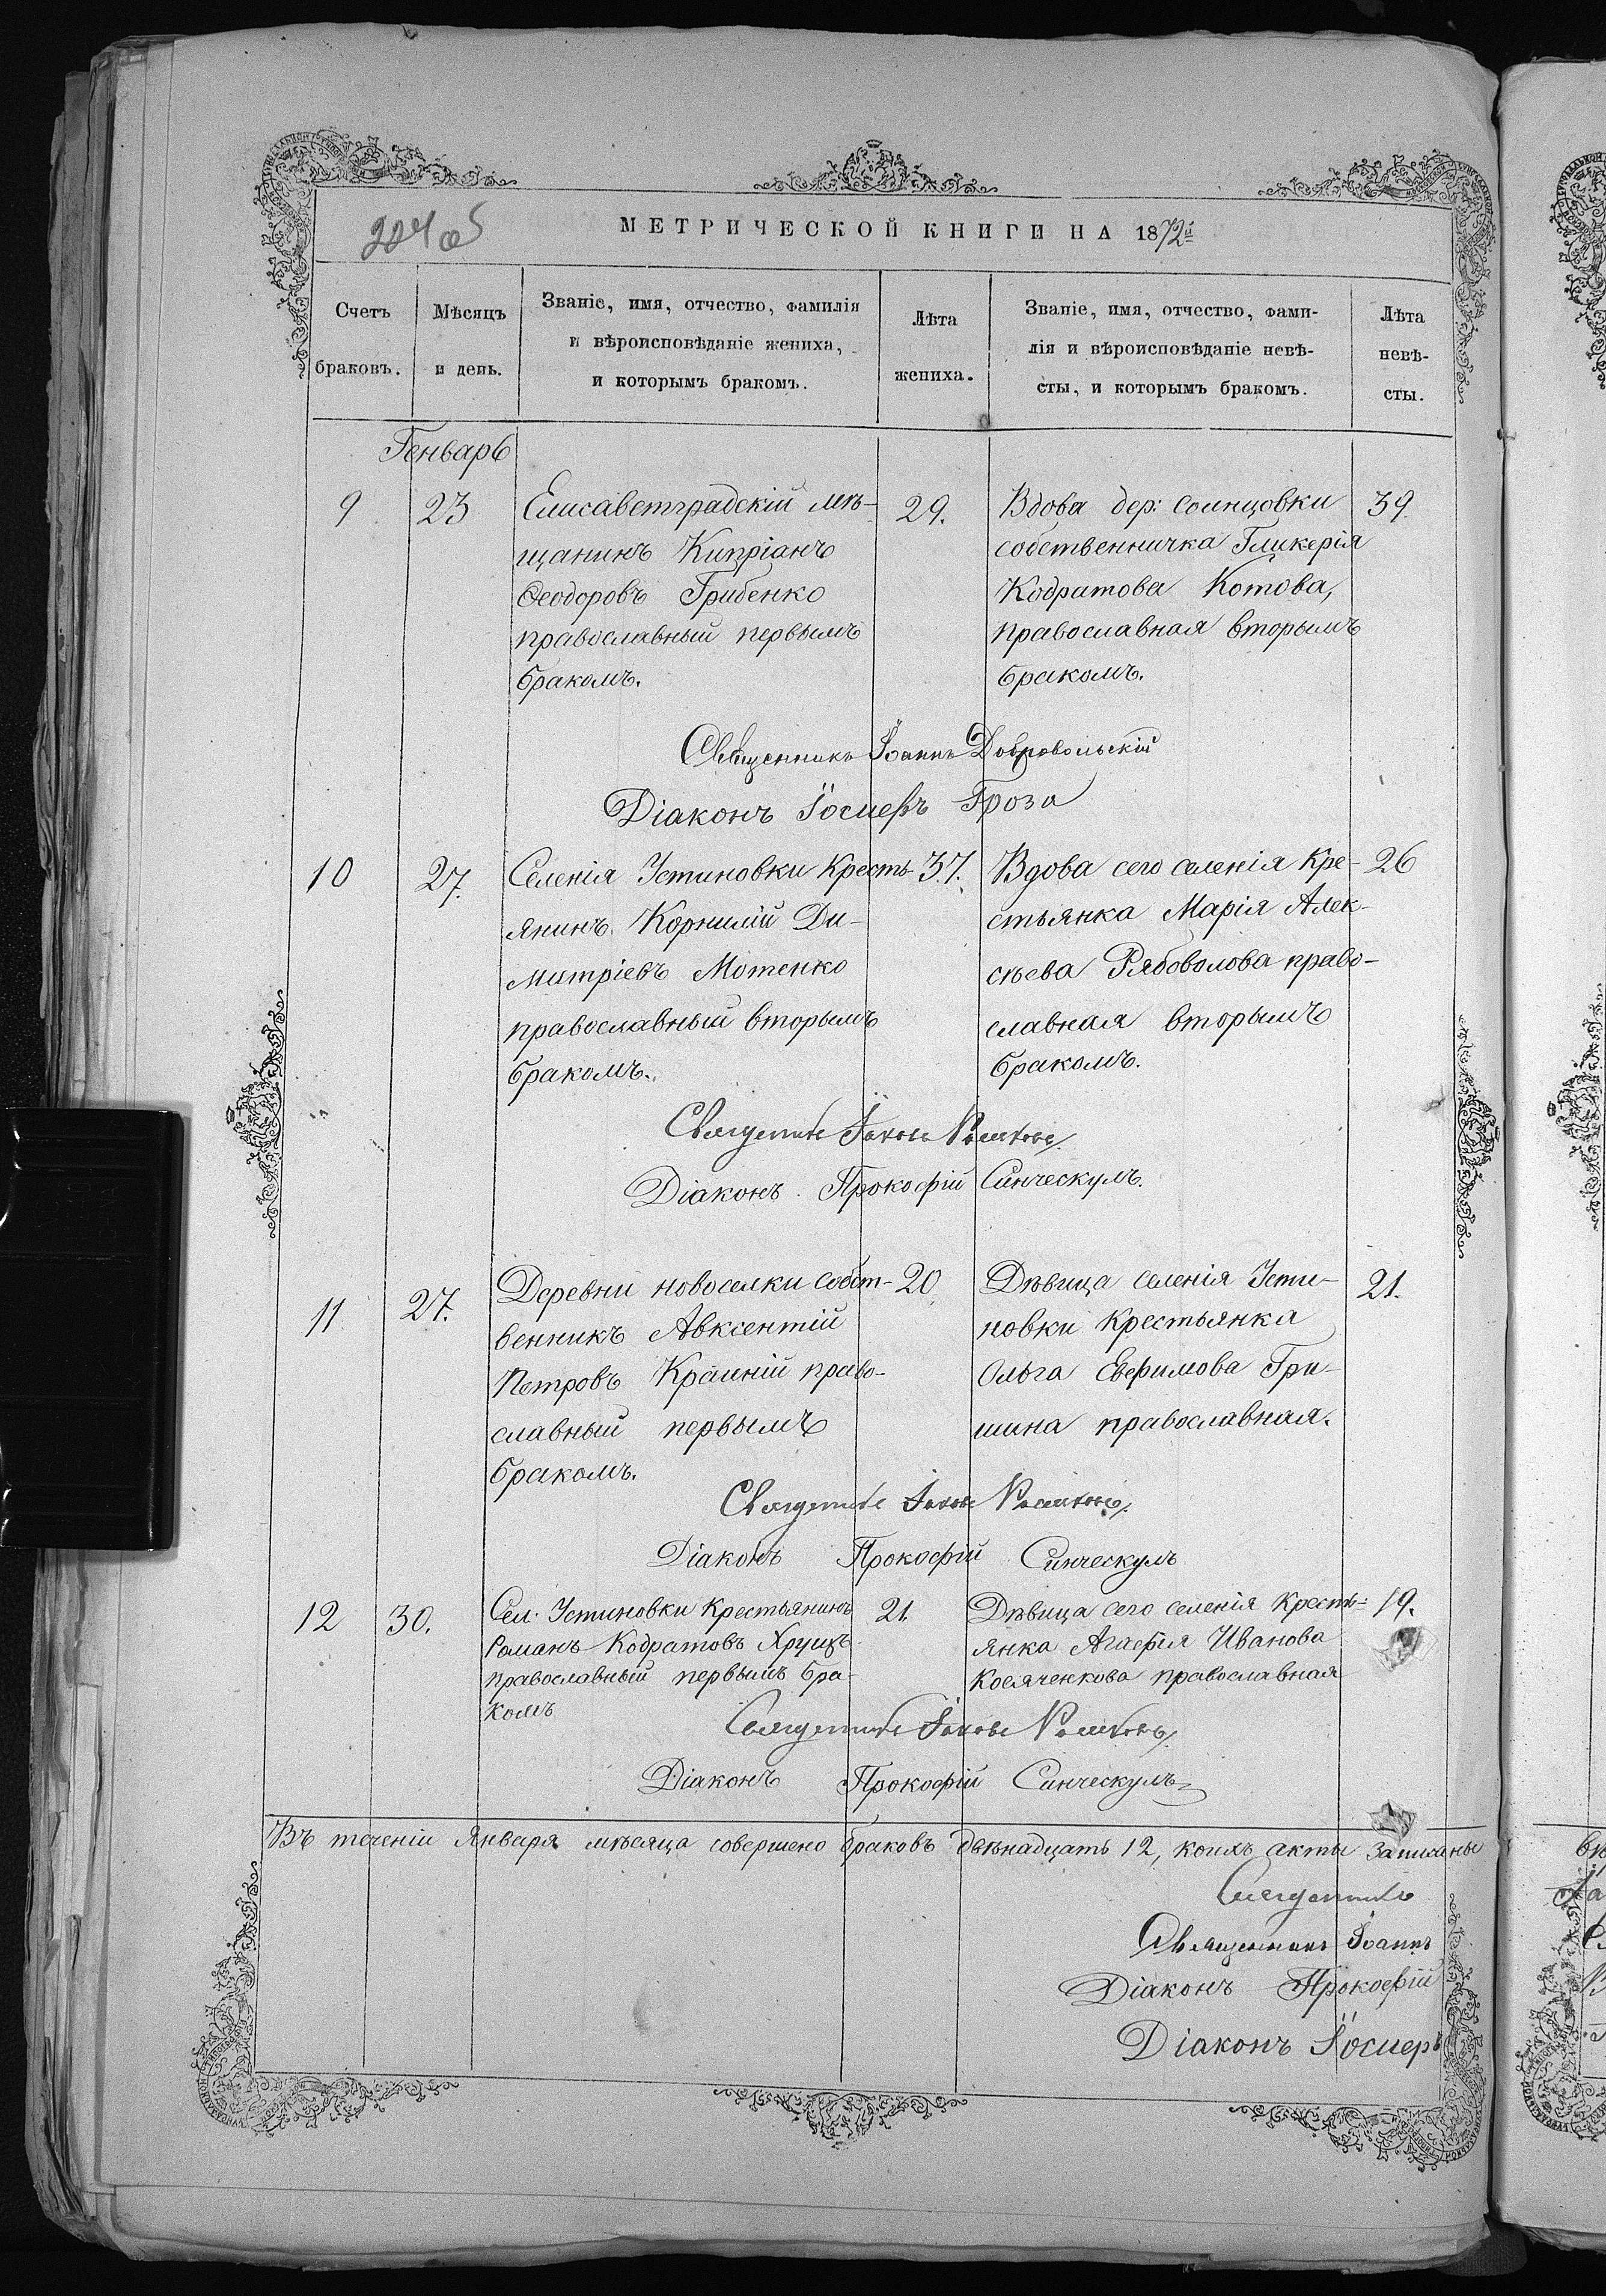 204 об
МЕТРИЧЕСКОЙ КНИГИ НА 1872й
Счетъ браковъ.
Мѣсяцъ и день.
Званіе, имя, отчество, фамилія
и вѣроисповѣданіе жениха,
и которымъ бракомъ.
Лѣта
жениха.
Званіе, имя, отчество, фами-
лія и вѣроисповѣданіе невѣ-
сты, и которымъ бракомъ.
Лѣта
невѣ-
сты.
Генварь
9
23
Елисаветградскій мѣ-
щанинъ Кипріанъ
Ѳеодоровъ Грибенко
православный первымъ
бракомъ.
29.
Вдова дер: Солнцовки
собственничка Гликерія
Кодратова Котова,
православная вторымъ
бракомъ.
39
Священникъ Іоаннъ Добровольскій
Діаконъ Іосифъ Гроза
10
27.
Селенія Устиновки Кресть-
янинъ Корнилій Ди-
митріевъ Мотенко
православный вторымъ
бракомъ.
37.
Вдова сего селенія Кре-
стьянка Марія Алек-
сѣева Рябоволова право-
славная вторымъ
бракомъ.
26
Священникъ Іаковъ
Діаконъ Прокофій Синческулъ.
11
27.
Деревни новоселки собст-
венникъ Авксентій
Петровъ Крайній право-
славный первымъ
бракомъ.
20
Дѣвица селенія Усти-
новки Крестьянка
Ольга Евфимова Гри-
шина православная.
21.
Священникъ Іаковъ
Діаконъ Прокофій Синческулъ
12
30.
Сел. Устиновки Крестьянинъ
Романъ Кодратовъ Хрущъ
православный первымъ бра-
комъ
21.
Дѣвица сего селенія Кресть-
янка Агафія Иванова
Косяченкова православная
19.
Священникъ Іаковъ
Діаконъ Прокофій Синческулъ
Въ теченіи Января мѣсяца совершено браковъ двѣнадцать 12, коихъ акты записаны
Священникъ
Священникъ Іоаннъ
Діаконъ Прокофій
Діаконъ Іосифъ